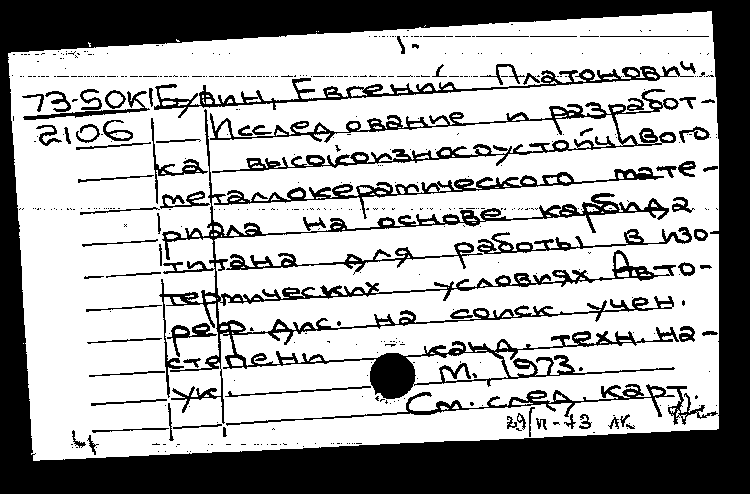 1.
73-50К Бувин, Евгений Платонович.
2106 Исследование и разработ-
ка высокоизносоустойчивого
металлокерамического мате-
риала на основе карбида
титана для работы в изо-
термических условиях. Авто-
реф. дис. на соиск. учен.
степени канд. техн. на-
ук. М., 1973.
См. след. карт.